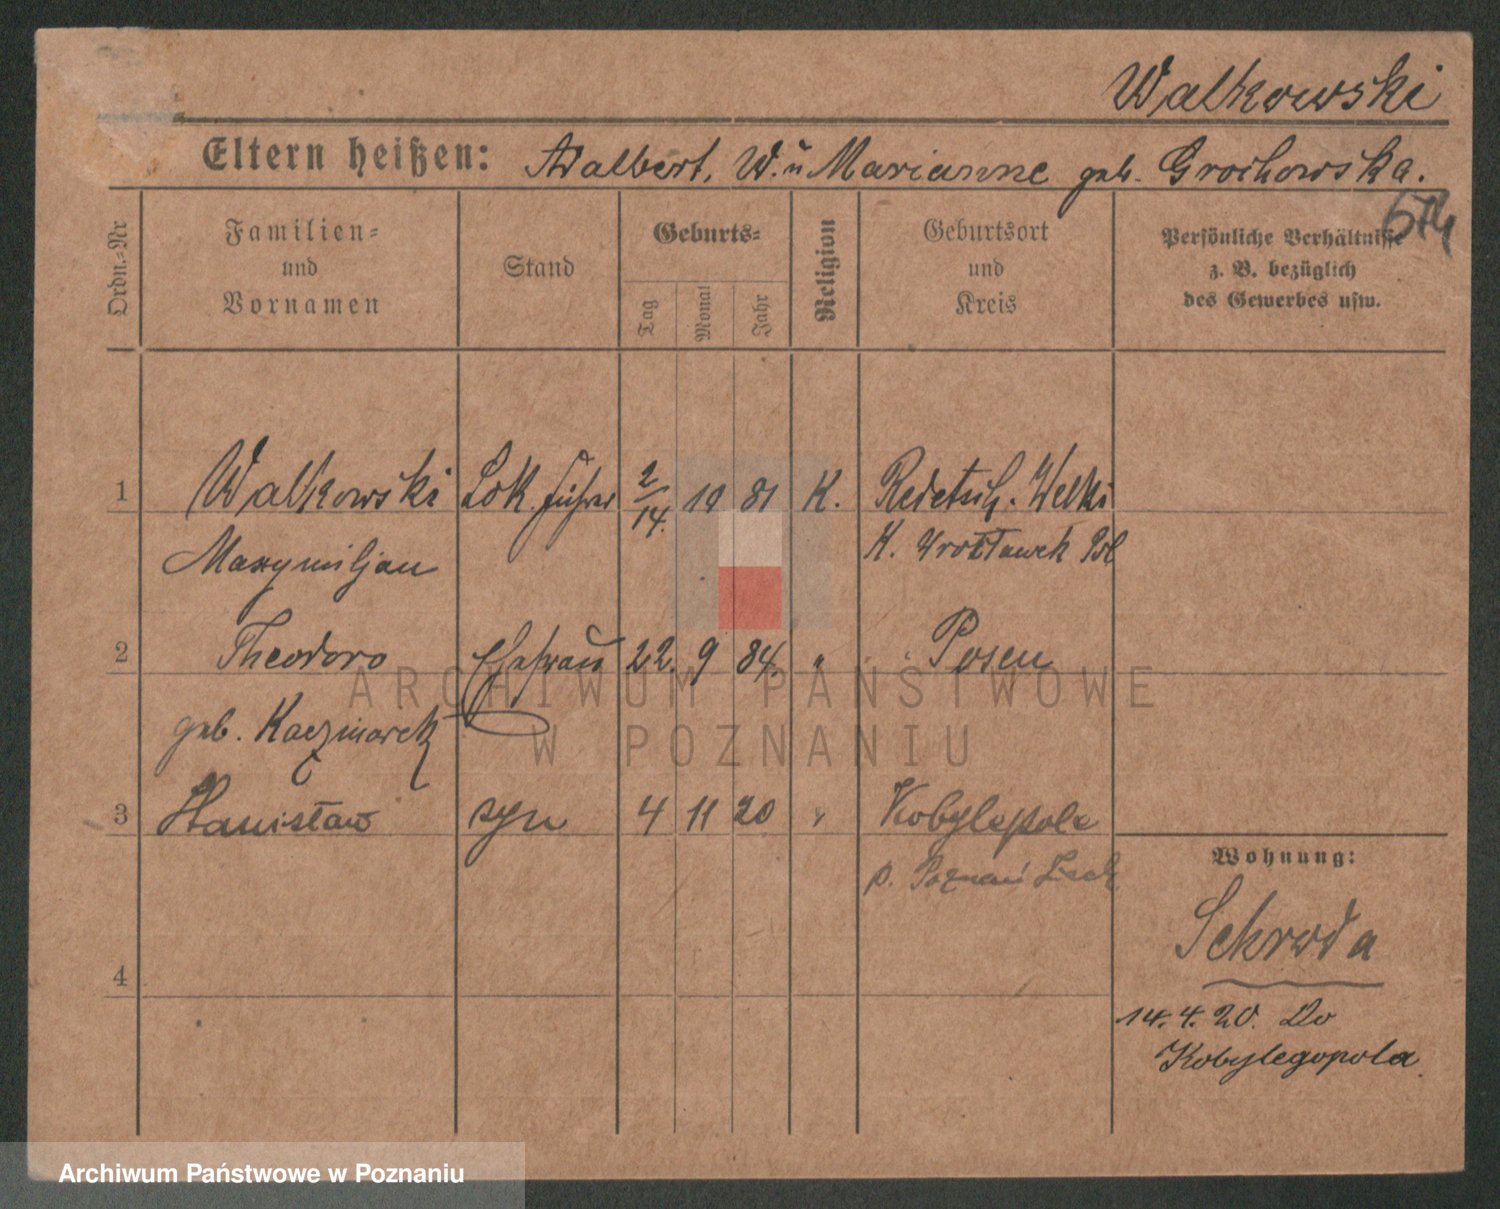 Walkowski
Eltern heißen: Adalbert, W. u Marianne geb. Grochowska.
Ordn.-Nr
Familien-
und
Vornamen
Stand
Geburts-
Tag
Monat
Jahr
Religion
Geburtsort
und
Kreis
Persönliche Verhältnisse
z. B. bezüglich
des Gewerbes usw.
1 Walkowski Lok. führer 2/14. 10 81 K. Radetsch. Welki
Maxymiljan K. Wrozlawek Pol
2 Theodora Ehefrau 22. 9 84. " Posen
geb. Kaczmarek
3 Stanisław syn 4 11 20 " Kobylepole
p. Poznań
4
Wohnung:
Schroda
14. 4. 20. Do
Kobylegopola
ARCHIWUM PAŃSTWOWE
W POZNANIU
Archiwum Państwowe w Poznaniu